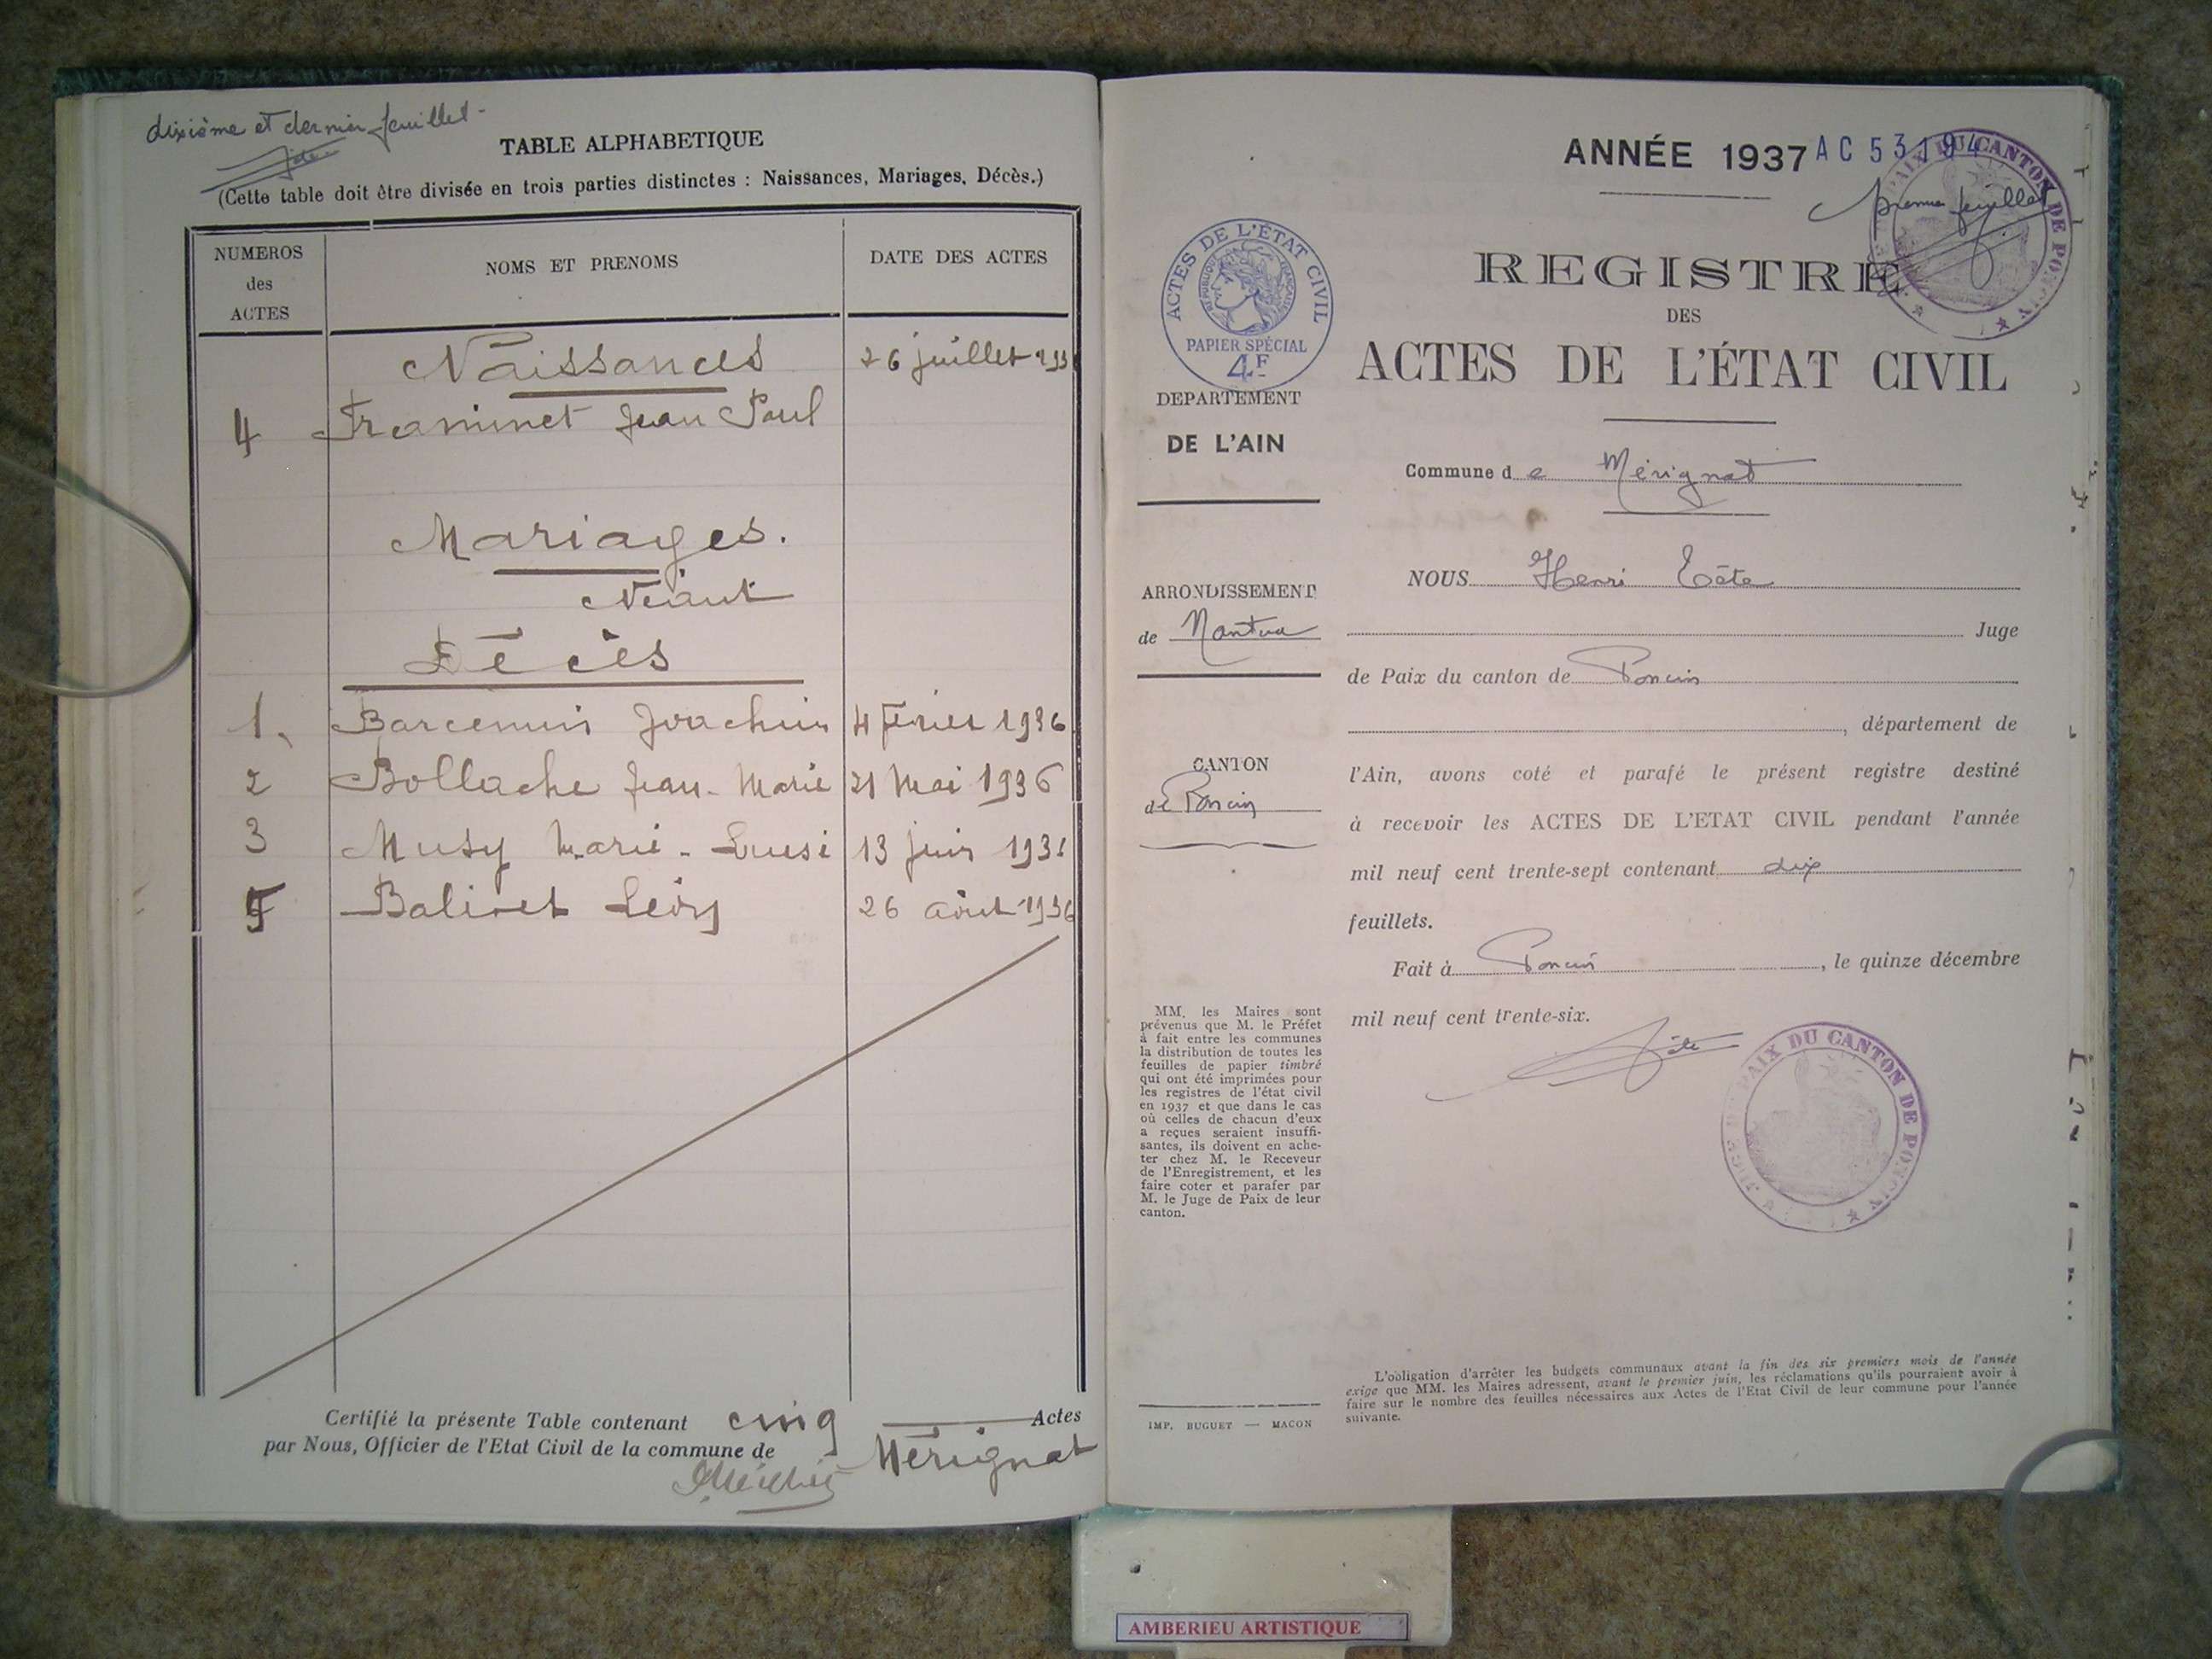 dixième et dernier feuillet -
TABLE ALPHABETIQUE
(Cette table doit être divisée en trois parties distinctes : Naissances, Mariages, Décès.)
NUMEROS
des
ACTES
NOMS ET PRENOMS
DATE DES ACTES
Naissances 26 juillet 193
4 Framinet Jean Paul
Mariages.
Néant
Décès
1, Joachim 4 Février 1936
2 Bollache Jean-Marie 21 Mai 1936
3 Musy Marie - 13 juin 193
5 Balivet Léon 26 août 1936
Certifié la présente Table contenant cinq Actes
par Nous, Officier de l'Etat Civil de la commune de Mérignat
ANNÉE 1937
AC 53194
premier feuillet
JUGE DE PAIX DU CANTON DE PONCIN
ACTES DE L'ÉTAT CIVIL
RÉPUBLIQUE FRANÇAISE
PAPIER SPÉCIAL
4F
REGISTRE
DES
ACTES DE L'ÉTAT CIVIL
DEPARTEMENT
DE L'AIN
Commune de Mérignat
ARRONDISSEMENT
de Nantua
CANTON
de Poncin
NOUS Henri Tête
Juge
de Paix du canton de Poncin
, département de
l'Ain, avons coté et parafé le présent registre destiné
à recevoir les ACTES DE L'ETAT CIVIL pendant l'année
mil neuf cent trente-sept contenant dix
feuillets.
Fait à Poncin, le quinze décembre
mil neuf cent trente-six.
Tête
JUGE DE PAIX DU CANTON DE PONCIN
MM. les Maires sont
prévenus que M. le Préfet
à fait entre les communes
la distribution de toutes les
feuilles de papier timbré
qui ont été imprimées pour
les registres de l'état civil
en 1937 et que dans le cas
où celles de chacun d'eux
a reçues seraient insuffi-
santes, ils doivent en ache-
ter chez M. le Receveur
de l'Enregistrement, et les
faire coter et parafer par
M. le Juge de Paix de leur
canton.
L'obligation d'arrêter les budgets communaux avant la fin des six premiers mois de l'année
exige que MM. les Maires adressent, avant le premier juin, les réclamations qu'ils pourraient avoir à
faire sur le nombre des feuilles nécessaires aux Actes de l'Etat Civil de leur commune pour l'année
suivante.
IMP. BUGUET — MACON
AMBERIEU ARTISTIQUE